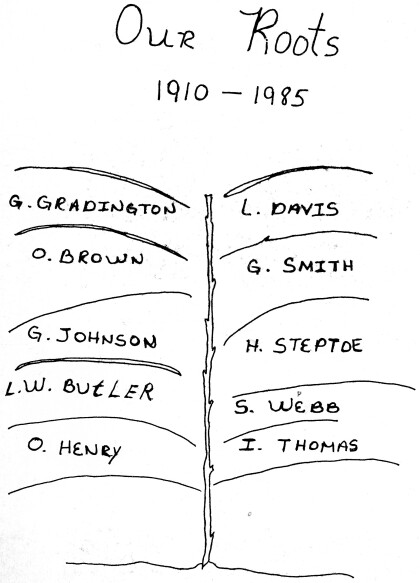 Our Roots
1910 - 1985
G. GRADINGTON
O. BROWN
G. JOHNSON
L.W. BUtLER
O. HENRY
L. DAVIS
G. SMITH
H. STEPTOE
S. WEBB
I. THOMAS